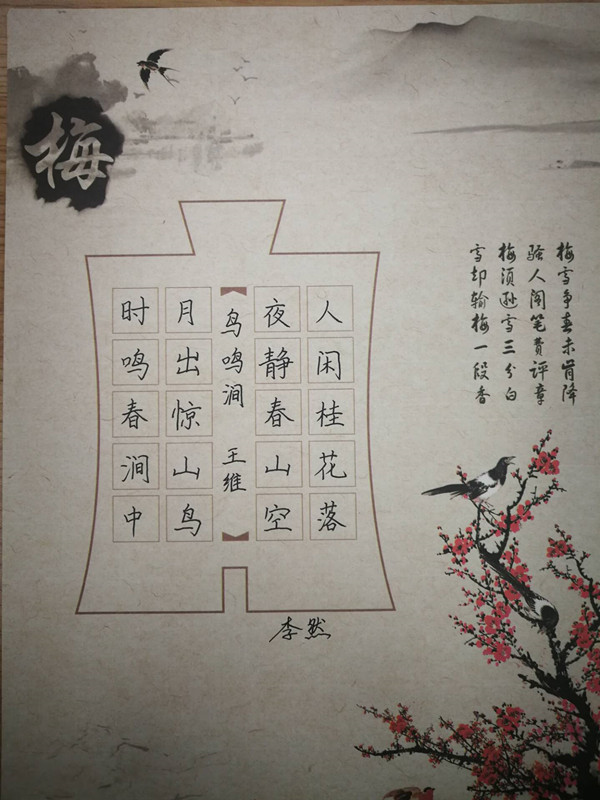 梅
梅雪争春未肯降
骚人阁笔费评章
梅须逊雪三分白
雪却输梅一段香
人闲桂花落
夜静春山空
鸟鸣涧 王维
月出惊山鸟
时鸣春涧中
李然